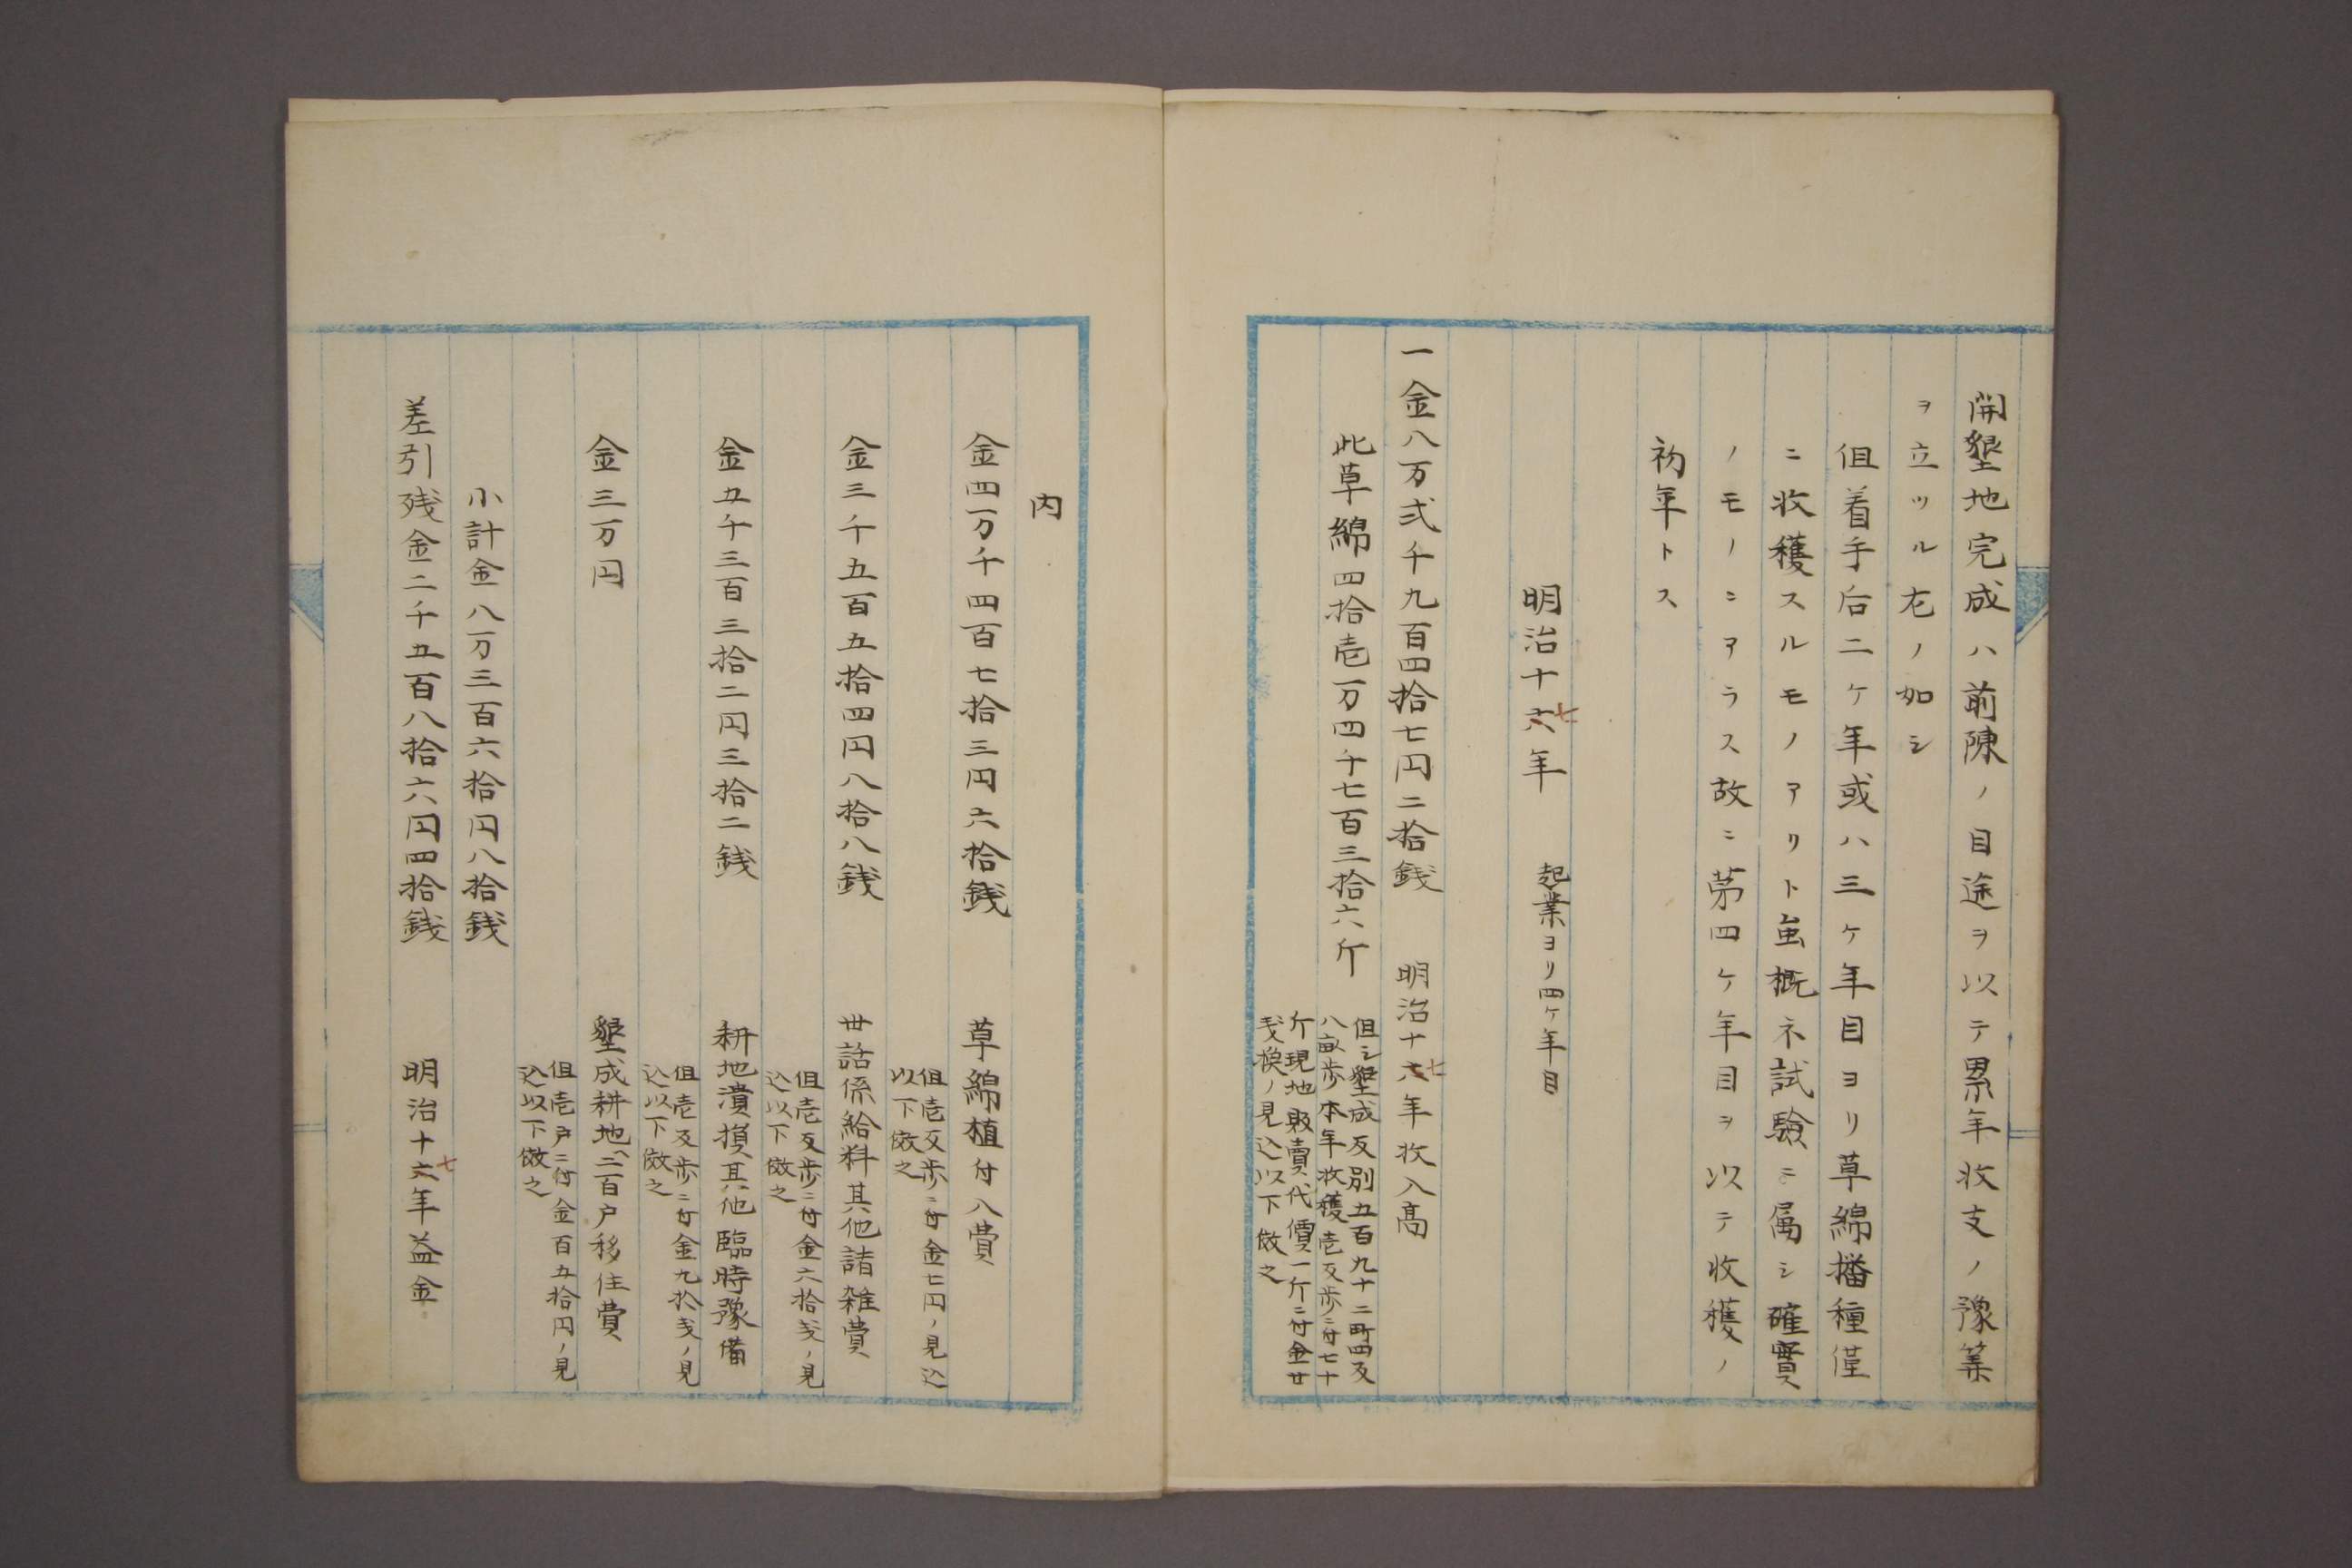 開墾地完成ハ前陳ノ目途ヲ以テ累年收支ノ豫筭
ヲ立ツル左ノ如シ
但着手后二ケ年或ハ三ケ年目ヨリ草綿播種僅
ニ收穫スルモノアリト虽概ネ試驗ニ属シ確實
ノモノニアラス故ニ第四ケ年目ヲ以テ收穫ノ
初年トス
明治十六七年 起業ヨリ四ケ年目
一金八万弐千九百四拾七円二拾銭 明治十六七年收入高
此草綿四拾壱万四千七百三拾六斤
但シ墾成反別五百九十二町四反
八畝歩本年收穫壱反歩ニ付七十
斤現地販賣代價一斤ニ付金廿
戋換ノ見込以下倣之
内
金四万千四百七拾三円六拾銭 草綿植付入費
但壱反歩ニ付金七円ノ見込
以下倣之
金三千五百五拾四円八拾八銭 世話係給料其他諸雑費
但壱反歩ニ付金六拾戋ノ見
込以下倣之
金五千三百三拾二円三拾二銭 耕地潰損其他臨時豫備
但壱反歩ニ付金九拾戋ノ見
込以下倣之
金三万円 墾成耕地ヘ二百戸移住費
但壱戸ニ付金百五拾円ノ見
込以下倣之
小計金八万三百六拾円八拾銭
差引残金二千五百八拾六円四拾銭 明治十六七年益金